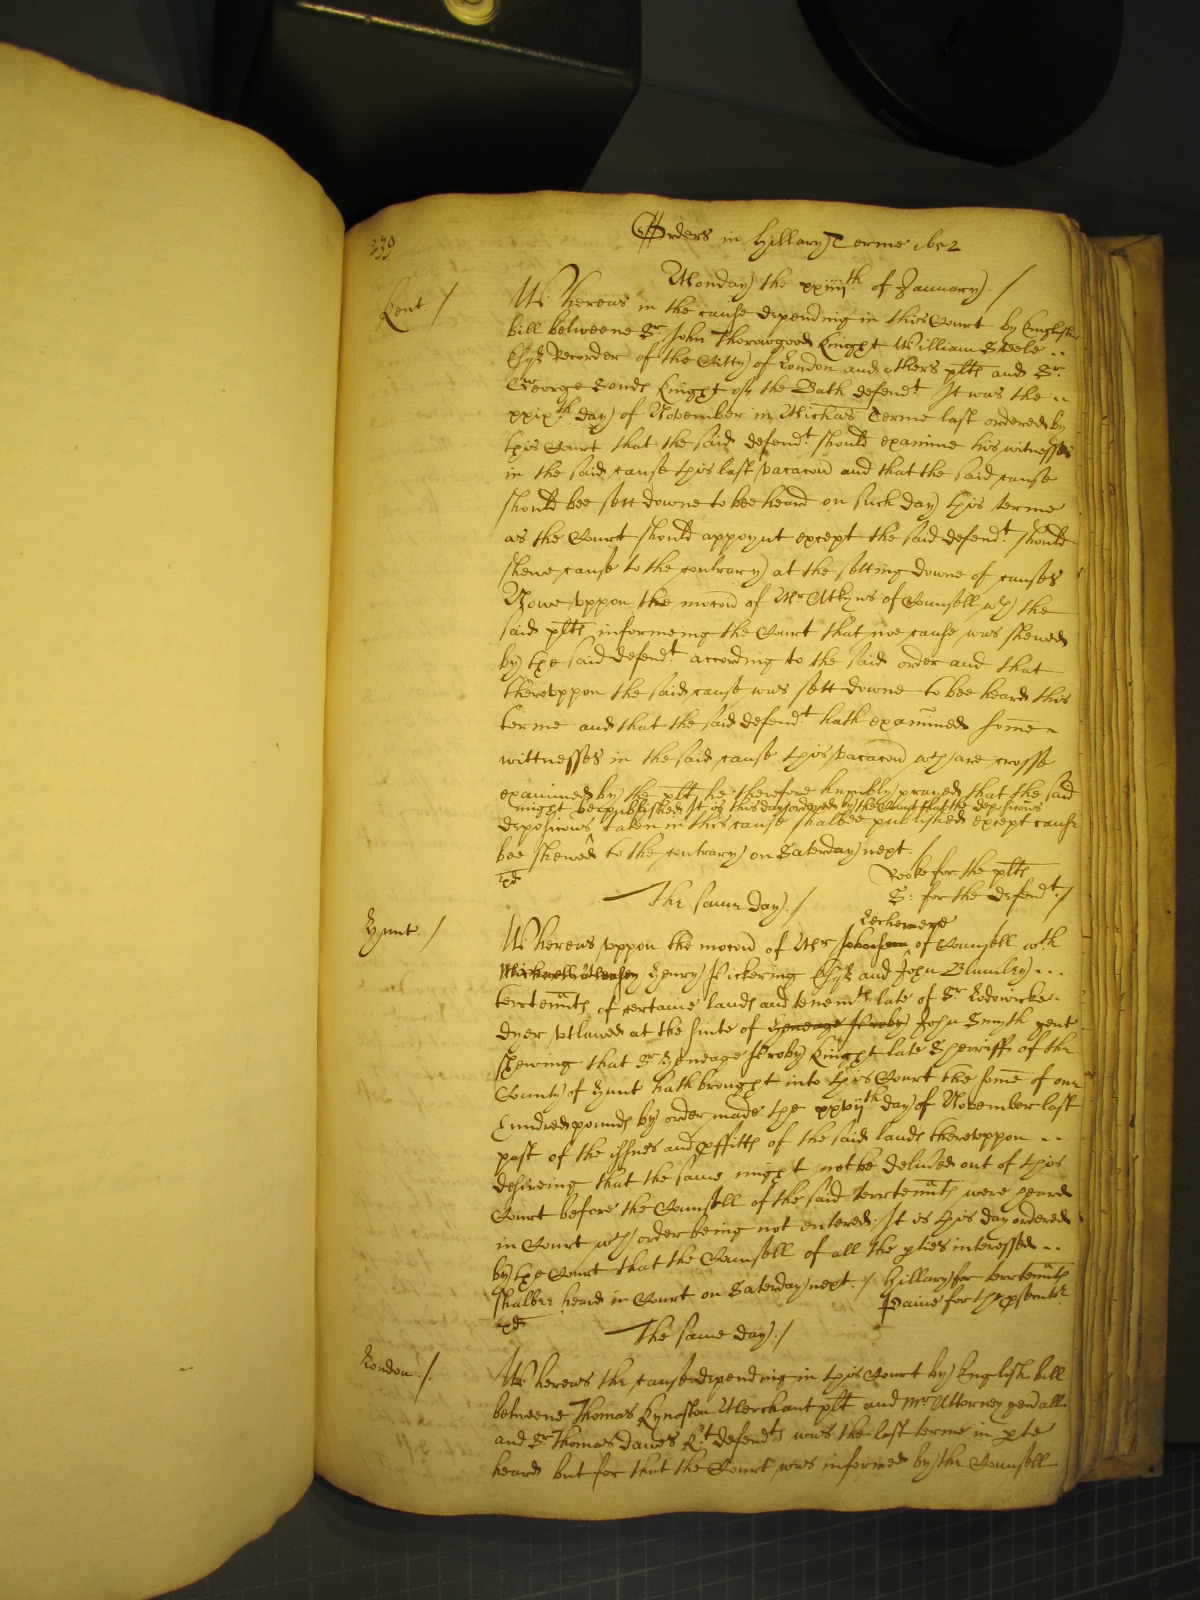 230
Orders in Hillary Terme 1652
Monday the xxiiijth of January. /
Kent /
Whereas in the cause depending in this Court by English
bill betweene Sr. John Thorowgood Knight William Steele ..
Esqr Recorder of the Citty of London and others plts and Sr.
George Sonds Knight of the Bath defendt. It was the ..
xxixth day of November in Michas Terme last ordered by
this Court that the said defendt. should examine his witnesses
in the said cause this last vacacon and that the said cause
should bee sett downe to bee heard on such day this terme
as the Court should appoynt except the said defendt. should
shewe cause to the contrary at the setting downe of causes
Nowe vppon the mocon of Mr Atkyns of Counsell wth the
said plts informeing the Court that noe cause was shewed
by the said defendt. according to the said order and that
therevppon the said cause was sett downe to bee heard this
terme and that the said defendt. hath examined some
wittnesses in the said cause this vacacon wch are crosse
examined by the plts he therefore humbly prayed that the said
might bee published It is this day ordered by the Court that the deposicons
deposicons taken in this cause shalbee published except cause
bee shewed to the contrary on Saterday next. /
Rooke for the plts
S: for the defendt. /
The same day. /
Hunt /
Lechemere
Whereas vppon the mocon of Mr of Counsell wth
Henry Pickering Esqr and John Blundley ...
terrtennts of certaine lands and tenemts late of Sr. Lodowicke
Dyer vtlawed at the suite of Heneage Proby John Smyth gent
shewing that Sr Heneage Proby Knight late Sherriffe of the
County of Hunt hath brought into this Court the some of one
hundred pounds by order made the xxvijth day of November last
past of the issues and pffitts of the said lands therevppon ..
desireing that the same might not be deliuered out of this
Court before the Counsell of the said terrtennts were heard
in Court wch order being not entered. It is this day ordered
by the Court that the Counsell of all the pties interessed ..
shalbee heard in Court on Saterday next. / Hillary for terrtennts
Paine for the psecutr
The same day. /
London. /
Whereas the cause depending in this Court by English bill
betweene Thomas Kynaston Merchant plt and Mr Attorney genall
and Sr Thomas Dawes Kt. defendts was the last terme in pte
heard but for that the Court was informed by the Counsell